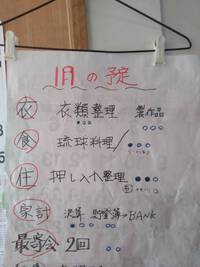 1月の予定
衣 衣類整理 製作品
食 琉球料理/
住 押し入れ整理
家計 決算 貯蓄簿→BANK
最寄会 2回